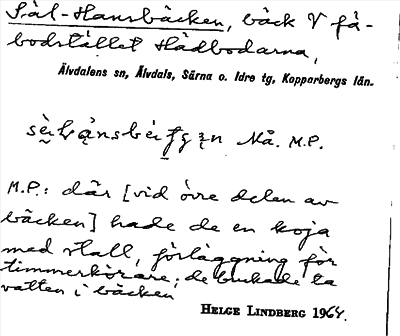 Säl-Hansbäcken, bäck V få-
bodstället Hådbodarna,
Älvdalens sn, Älvdals, Särna o. Idre tg, Kopparbergs län.
Nå. M.P.
M.P.: där [vid övre delen av
bäcken] hade de en koja
med stall, förläggning för
timmerkörare; de brukade ta
vatten i bäcken
HELGE LINDBERG 1964.